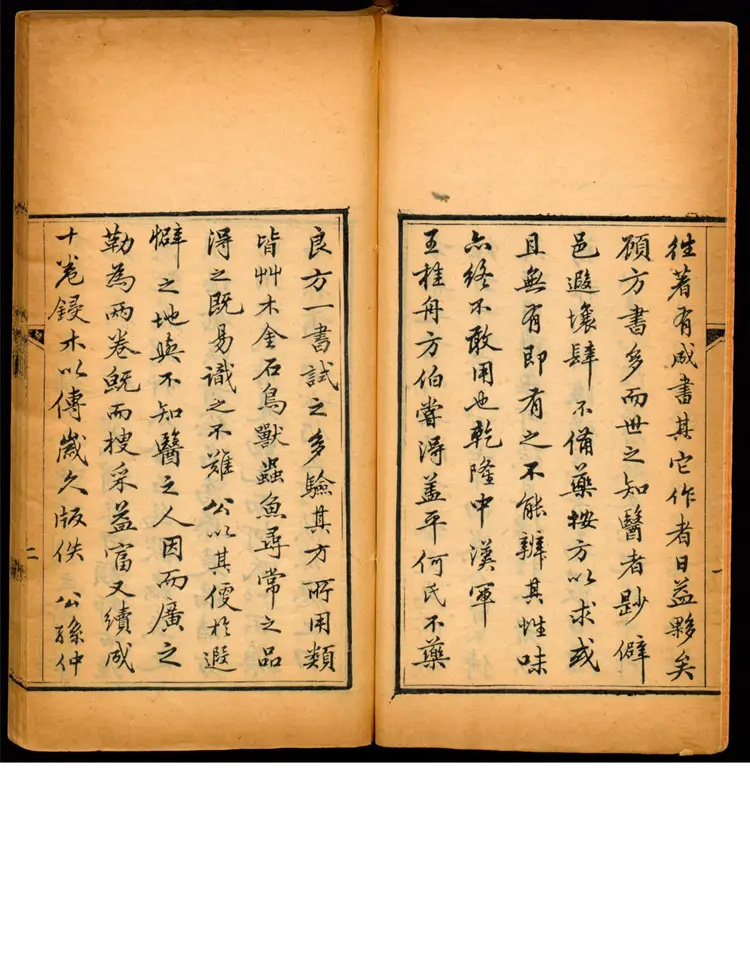 往著有成書其它作者日益夥矣
顧方書多而世之知醫者尟僻
邑遐壤肆不備藥按方以求或
且無有即有之不能辨其性味
亦終不敢用也乾隆中漢軍
王桂舟方伯嘗得蓋平何氏不藥
一
良方一書試之多驗其方所用類
皆艸木金石鳥獸蟲魚尋常之品
得之既易識之不難公以其便於遐
僻之地與不知醫之人因而廣之
勒為兩卷旣而搜采益富又續成
十卷鋟木以傳歲久版佚公孫仲
二